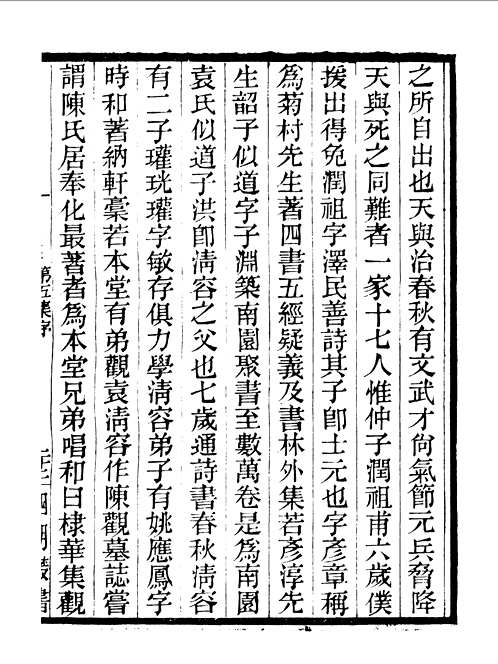 之所自出也天與治春秋有文武才尙氣節元兵脅降
天與死之同難者一家十七人惟仲子潤祖甫六歲僕
援出得免潤祖字澤民善詩其子卽士元也字彥章稱
爲菊村先生著四書五經疑義及書林外集若彥淳先
生韶子似道字子淵築南園聚書至數萬卷是爲南園
袁氏似道子洪卽淸容之父也七歲通詩書春秋淸容
有二子瓘珖瓘字敏存俱力學淸容弟子有姚應鳳字
時和著納軒稾若本堂有弟觀袁淸容作陳觀墓誌嘗
謂陳氏居奉化最著者爲本堂兄弟唱和曰棣華集觀
第五集序
四明叢書